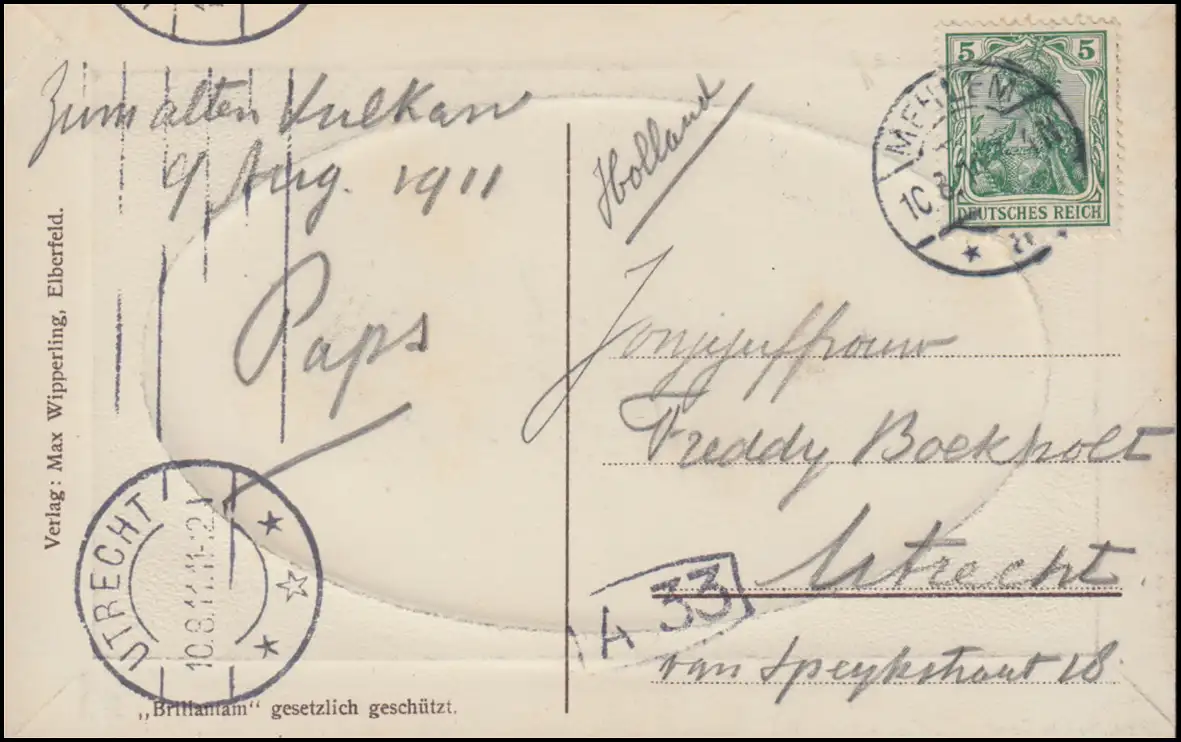 Zum alten Vulkan
9 Aug. 1911
Paps
Verlag: Max Wipperling, Elberfeld.
UTRECHT
10.8.11.11-12
„Brillantam“ gesetzlich geschützt.
Holland
5 5
DEUTSCHES REICH
MEHLEM
10.8.
Freddy Boekholt
Utrecht.
A 33
van Speykstraat 18